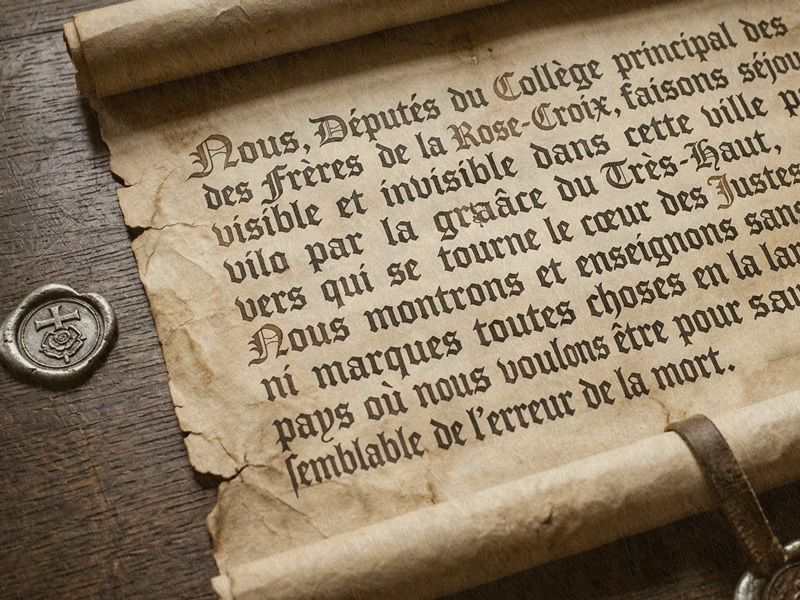 Nous, Députés du Collège principal des
des Frères de la Rose-Croix, faisons
visible et invisible dans cette ville
vilo par la graâce du Très-Haut,
vers qui se tourne le cœur des Justes
Nous montrons et enseignons sans
ni marques toutes choses en la
pays où nous voulons être pour
semblable de l'erreur de la mort.